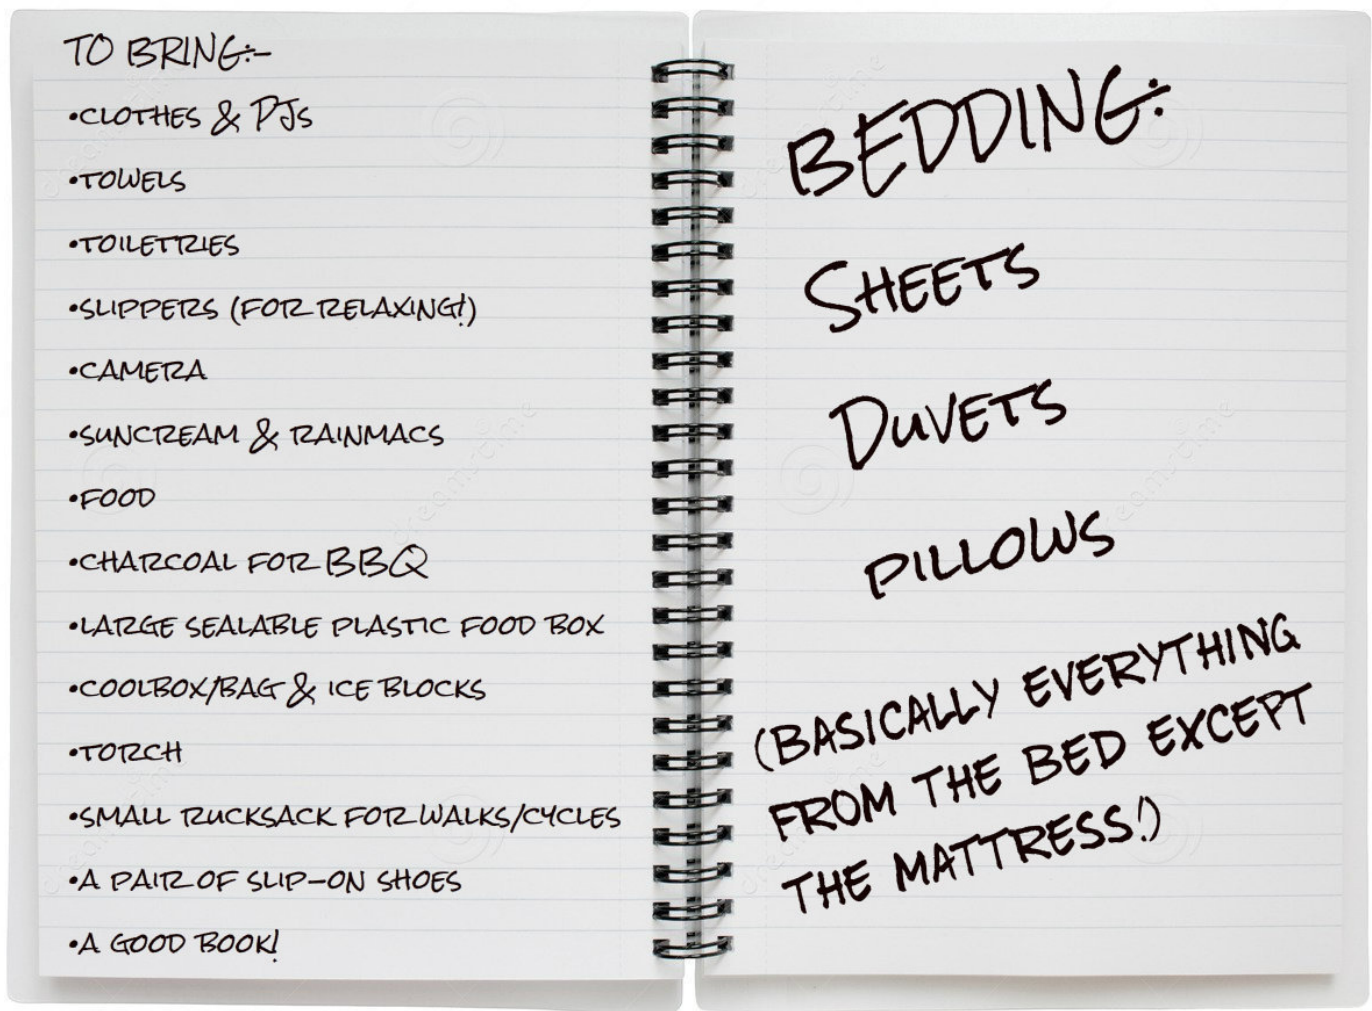 TO BRING:-
•CLOTHES & PJs
•TOWELS
•TOILETRIES
•SLIPPERS (FOR RELAXING!)
•CAMERA
•SUNCREAM & RAINMACS
•FOOD
•CHARCOAL FOR BBQ
•LARGE SEALABLE PLASTIC FOOD BOX
•COOLBOX/BAG & ICE BLOCKS
•TORCH
•SMALL RUCKSACK FOR WALKS/CYCLES
•A PAIR OF SLIP-ON SHOES
•A GOOD BOOK!
BEDDING:
SHEETS
DUVETS
PILLOWS
(BASICALLY EVERYTHING
FROM THE BED EXCEPT
THE MATTRESS!)
dreamstime